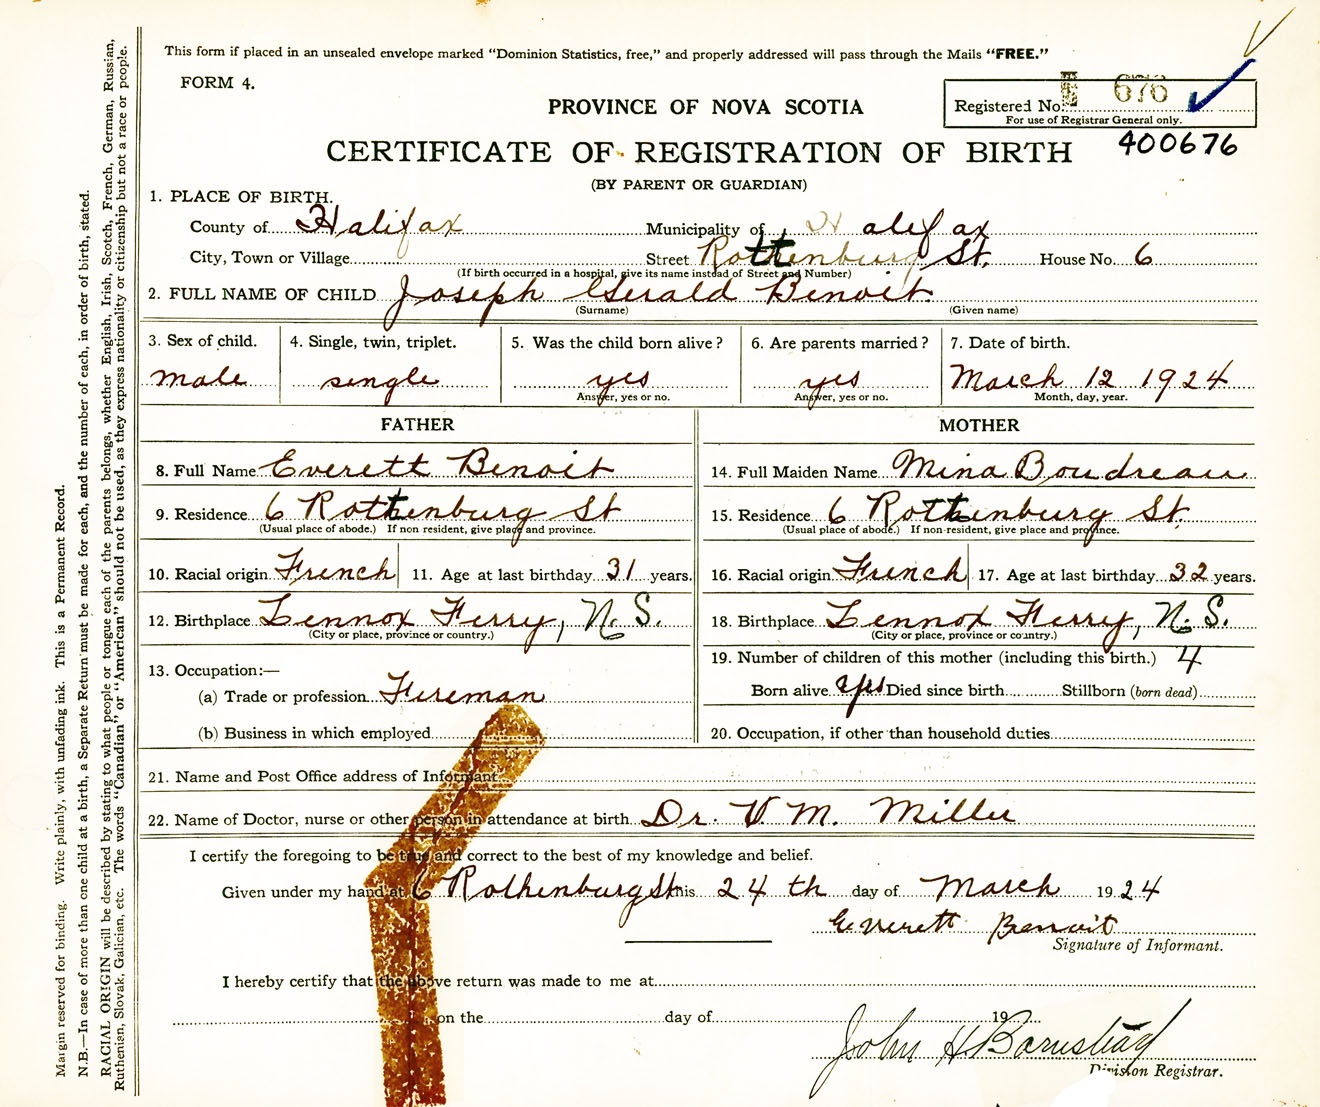 This form if placed in an unsealed envelope marked "Dominion Statistics, free," and properly addressed will pass through the Mails "FREE."
FORM 4.
PROVINCE OF NOVA SCOTIA
Registered No. 676
For use of Registrar General only.
400676
CERTIFICATE OF REGISTRATION OF BIRTH
(BY PARENT OR GUARDIAN)
1. PLACE OF BIRTH.
County of Halifax Municipality of Halifax
City, Town or Village Street Rottenburg St. House No. 6
(If birth occurred in a hospital, give its name instead of Street and Number)
2. FULL NAME OF CHILD Joseph Gerald Benoit
(Surname) (Given name)
3. Sex of child. 4. Single, twin, triplet. 5. Was the child born alive? 6. Are parents married? 7. Date of birth.
male single yes yes March 12 1924
Answer, yes or no. Answer, yes or no. Month, day, year.
FATHER MOTHER
8. Full Name Everett Benoit 14. Full Maiden Name Mina Boudreau
9. Residence 6 Rottenburg St 15. Residence 6 Rottenburg St.
(Usual place of abode.) If non resident, give place and province. (Usual place of abode.) If non-resident, give place and province.
10. Racial origin French 11. Age at last birthday 31 years. 16. Racial origin French 17. Age at last birthday 32 years.
12. Birthplace Lennox Ferry, N.S. 18. Birthplace Lennox Ferry, N.S.
(City or place, province or country.) (City or place, province or country.)
13. Occupation:— 19. Number of children of this mother (including this birth.) 4
(a) Trade or profession Fireman Born alive yes Died since birth Stillborn (born dead)
(b) Business in which employed 20. Occupation, if other than household duties
21. Name and Post Office address of Informant
22. Name of Doctor, nurse or other person in attendance at birth Dr. V. M. Miller
I certify the foregoing to be true and correct to the best of my knowledge and belief.
Given under my hand at 6 Rothenburg St this 24 th day of March 1924
Everett Benoit
Signature of Informant.
I hereby certify that the above return was made to me at
on the day of 19
John H Barnstead
Division Registrar.
Margin reserved for binding. Write plainly, with unfading ink. This is a Permanent Record.
N.B.—In case of more than one child at a birth, a Separate Return must be made for each, and the number of each, in order of birth, stated.
RACIAL ORIGIN will be described by stating to what people or tongue each of the parents belongs, whether English, Irish, Scotch, French, German, Russian,
Ruthenian, Slovak, Galician, etc. The words "Canadian" or "American" should not be used, as they express nationality or citizenship but not a race or people.